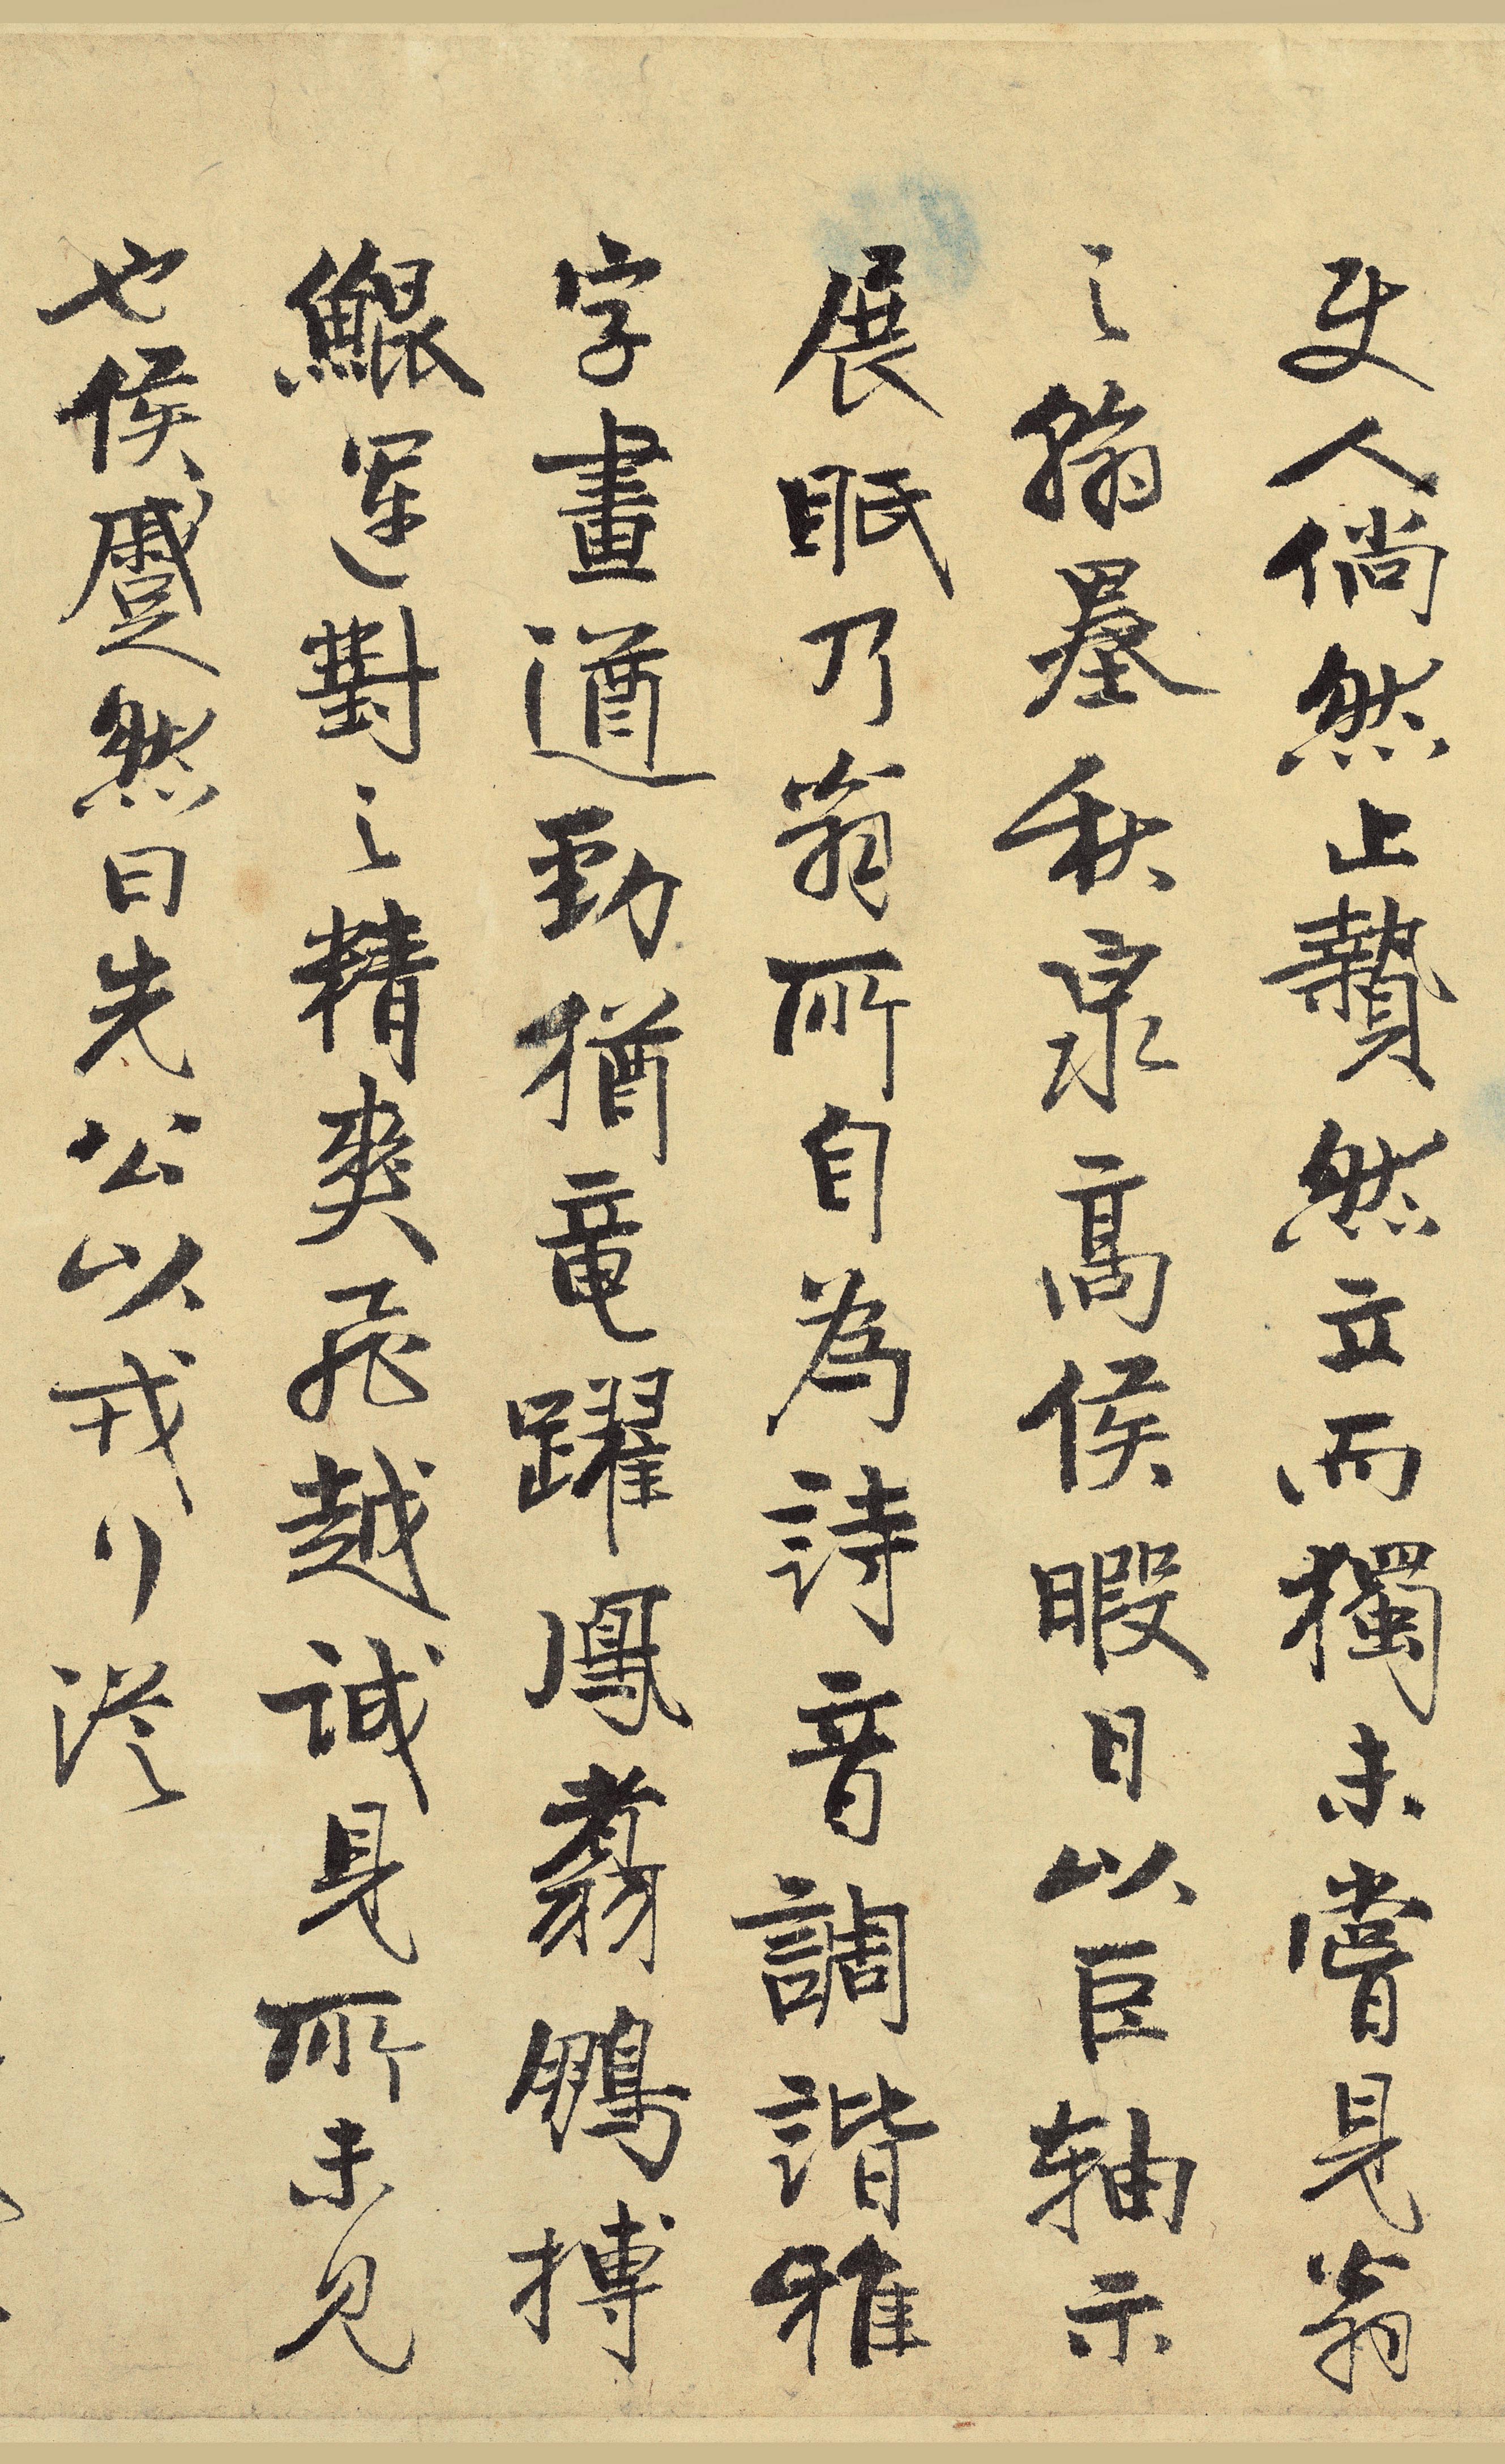 使人倘然止贄然立而獨未嘗見翁
之翰墨秋泉高侯暇日以巨軸示
展眂乃翁所自為詩音調諧雅
字畫遒勁猶竜躍鳳翥鵬搏
鯤運對之精爽飛越誠見所未見
也侯蹙然曰先公以戎行起